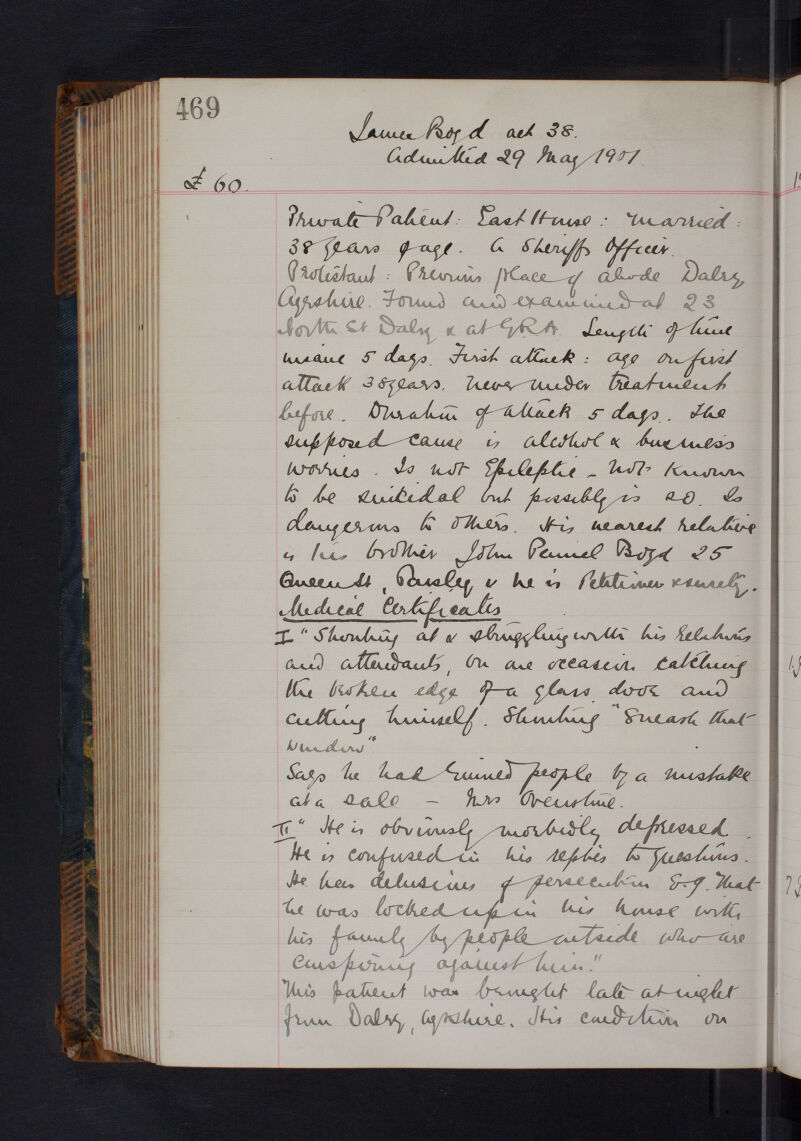 469
James Boyd aet 38.
Admitted 29 May 1901
£60.
Private Patient: East House: married:
38 years of age. A Sheriffs Officer.
Protestant: Previous place of abode Dalry
Ayrshire. Found and examined at 23
North St Dalry & at G.R.A. Length of time
insane 5 days. First attack: age on first
attack 38 years. Never under treatment
before. Duration of attack 5 days. The
supposed cause is alcohol & business
worries. Is not Epileptic - not known
to be suicidal but possibly is so. Is
dangerous to others. His nearest relative
is his brother John Boyd 25
Queen St, Paisley & he is Petitioner & surety.
Medical Certificates
I "Shouting at & struggling with his relations
and attendants, on one occasion catching
the broken edge of a glass door and
cutting himself. Shouting "Smash that
window"
Says he had ruined people by a mistake
at a sale - Mrs
II "He is obviously morbidly depressed.
He is confused in his replies to questions.
He has delusions of persecution E.g. that
he was locked up in his house with
his family by people outside who are
conspiring against him."
This patient was brought late at night
from Dalry, Ayrshire. His condition on